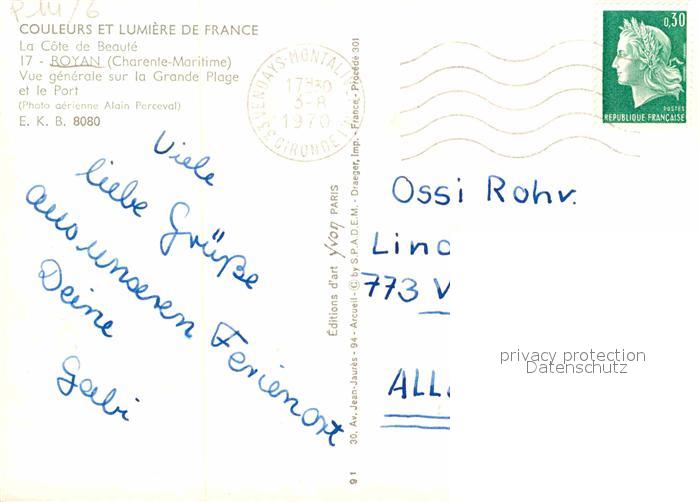 P 141/6
COULEURS ET LUMIÈRE DE FRANCE
La Côte de Beauté
17 - ROYAN (Charente-Maritime)
Vue générale sur la Grande Plage
et le Port
(Photo aérienne Alain Perceval)
E. K. B. 8080
Viele
liebe Grüße
aus unseren Ferienort
Deine
Gabi
33 VENDAYS-MONTALIVET
17H30
3-8
1970
GIRONDE
Éditions d'art Yvon PARIS
30, Av. Jean-Jaurès - 94 - Arcueil - © by S.P.A.D.E.M. - Draeger, Imp. - France - Procédé 301
91
0,30
POSTES
REPUBLIQUE FRANÇAISE
Ossi Rohr.
Lind
773 V
ALL
privacy protection
Datenschutz